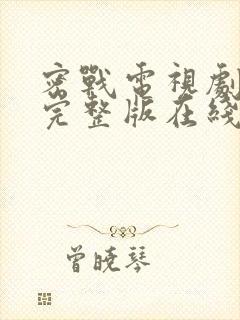 密戰電視劇
完整版在綫
曾曉琴